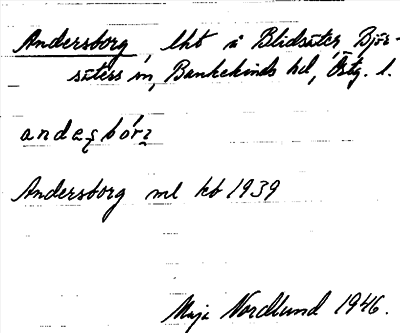 Andersborg, lht å Blidsäter, Björ-
säters sn, Bankekinds hd, Östg. l.
andeʂbórʐ
Andersborg ml kb 1939
Maja Nordlund 1946.